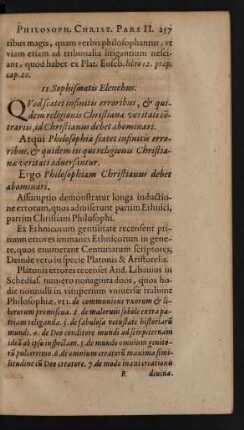 PHILOSOPH. CHRIST. PARS II. 257
ribus magis, quam verbis philosophantur, vt
viam etiam ad tribunalia litigantium nesci-
ant, quod habet ex Plat. Euseb. libro 12. præp.
cap. 20.
11. Sophismatis Elenchus.
QVod scatet infinitis erroribus, & qui-
dem religionis Christianæ veritati cō-
trariis, id Christianus debet abominari.
Atqui Philosophia scatet infinitis erro-
ribus, & quidem iis qui religionis Christia-
næ veritati aduersantur.
Ergo Philosophiam Christianus debet
abominari.
Assumptio demonstratur longa inductio-
ne errorum, quos admiserunt partim Ethnici,
partim Christiani Philosophi.
Ex Ethnicorum gentilitate recensent pri-
mum errores immanes Ethnicorum in gene-
re, quos enumerant Centuriarum scriptores,
Deinde vero in specie Platonis & Aristotelis.
Platonis errores recenset And. Libauius in
Schediasf. numero nonaginta duos, quos ho-
die nonnulli in vituperium vniuersæ trahunt
Philosophiæ, vt 1. de communione vxorum & li-
berorum promiscua. 2. de malorum sobole extra pa-
triam releganda. 3. de fabulosa vetustate historiarū
mundi. 4. de Deo conditore mundi ad sempiternam
ideā ab ipso inspectam. 5. de mundo omnium genito-
rū pulcerrimo. 6. de omnium creatorū maxima simi-
litudine cū Deo creatore. 7. de modo inani creationis
R diuinæ.